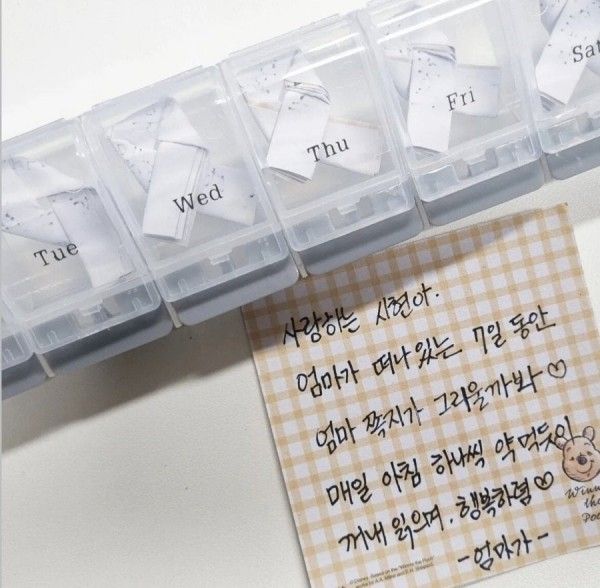 Tue
Wed
Thu
Fri
Sat
사랑하는 시현아.
엄마가 떠나있는 7일 동안
엄마 쪽지가 그리울까봐 ♡
매일 아침 하나씩 약 먹듯이
꺼내 읽으며. 행복하렴 ♡
-엄마가-
Winn
the
Poo
© Disney. Based on the "Winnie the Pooh"
works by A.A. Milne and E.H. Shepard.